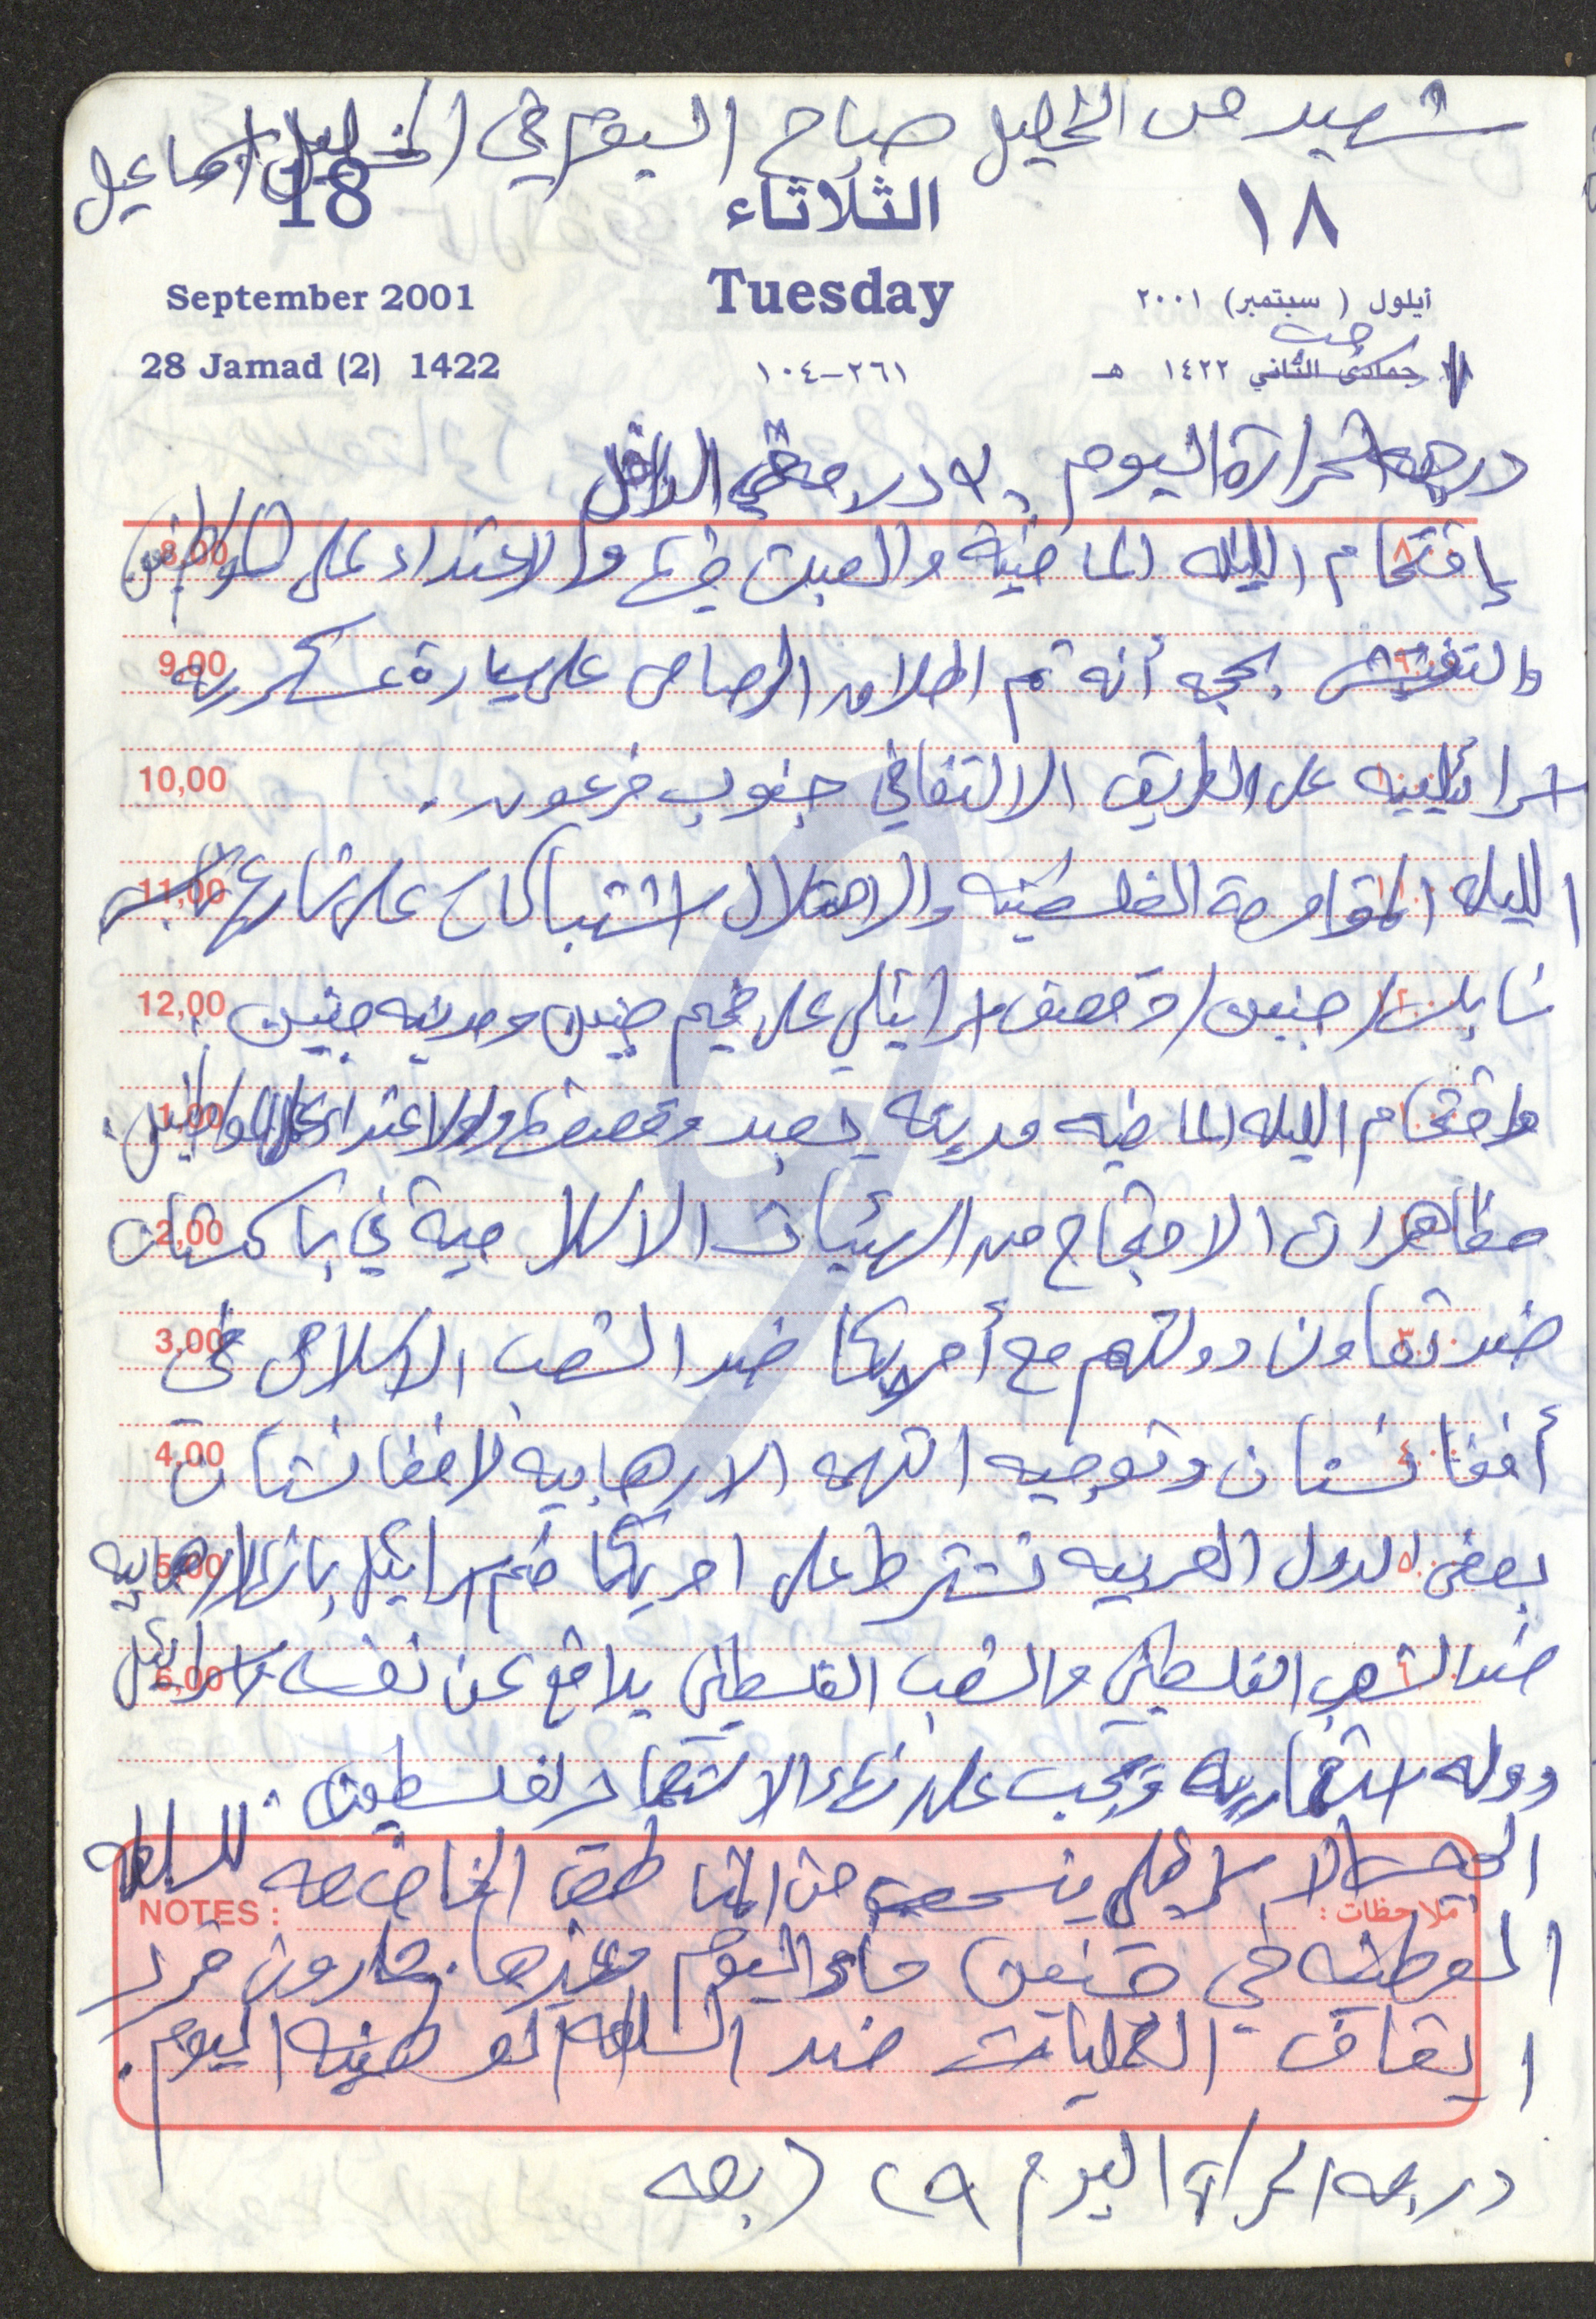 شهيد من الخليل صباح اليوم في الخليل اسماعيل
18 الثلاثاء ١٨
September 2001 Tuesday أيلول ( سبتمبر) ٢٠٠١
رجب
28 Jamad (2) 1422 ٢٦١-١٠٤ جمادى الثاني ١٤٢٢ هـ
درجة الحرارة اليوم في الداخل
8,00 إقتحام الليله الماضية والعبث فيها والاعتداء على المواطنين
9,00 والتفتيش بحجه أنه تم اطلاق الرصاص على سيارة عسكريه
10,00 اسرائيليه على الطريق الالتفافي جنوب فرعون.
11,00 الليله المقاومة الفلسطينيه والاحتلال اشتباكات على شارع
12,00 نابلس/جنين/وقصف اسرائيلي على مخيم جنين ومدينه جنين.
1,00 واقتحام الليله الماضيه مدينه يعبد وقصفها والاعتداء على المواطنين.
2,00 مظاهرات الاحتجاج من الهيئات الاسلامية في باكستان
3,00 ضد تعاون دولتهم مع أمريكا ضد الشعب الاسلامي في
4,00 أفغانستان وتوجيه التهمه الارهابيه لافغانستان
5,00 بعض الدول العربيه تشترط على امريكا ضم اسرائيل بانها ارهابيه
6,00 ضد الشعب الفلسطيني والشعب الفلسطيني يدافع عن نفسه واسرائيل
دوله استعماريه ويجب عليها انهاء الاستعمار لفلسطين.
الجيش الاسرائيلي ينسحب من المناطق الخاضعه للسلطه
NOTES : ملاحظات :
الوطنيه في جنين مساء اليوم وغيرها. شارون قرر
ايقاف العمليات ضد السلطه الوطنيه اليوم.
درجه الحرارة اليوم ٢٩